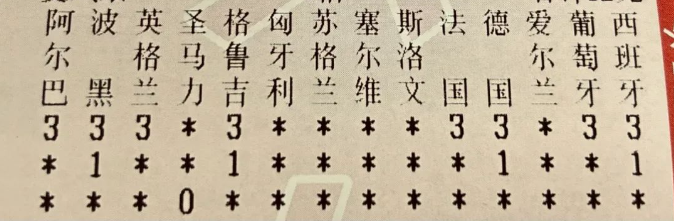 阿 波 英 圣 格 匈 苏 塞 斯 法 德 爱 葡 西
尔 格 马 鲁 牙 格 尔 洛 尔 萄 班
巴 黑 兰 力 吉 利 兰 维 文 国 国 兰 牙 牙
3 3 3 * 3 * * * * 3 3 * 3 3
* 1 * * 1 * * * * * 1 * * 1
* * * 0 * * * * * * * * * *